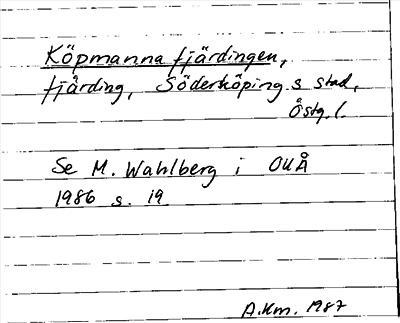 Köpmannafjärdingen,
fjärding, Söderköpings stad,
Östg.l.
Se M. Wahlberg i OUÅ
1986 s. 19.
A.Km. 1987